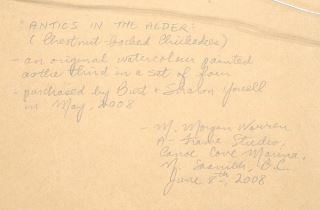 ANTICS IN THE ALDER:
(Chestnut-backed Chickadees)
- an original watercolour painted
as the third in a set of four
- purchased by Burt & Sharon Yowell
in May, 2008
- M. Morgan Warren
A-Frame Studio,
Canoe Cove Marina,
N. Saanich, B.C.
June 8th, 2008